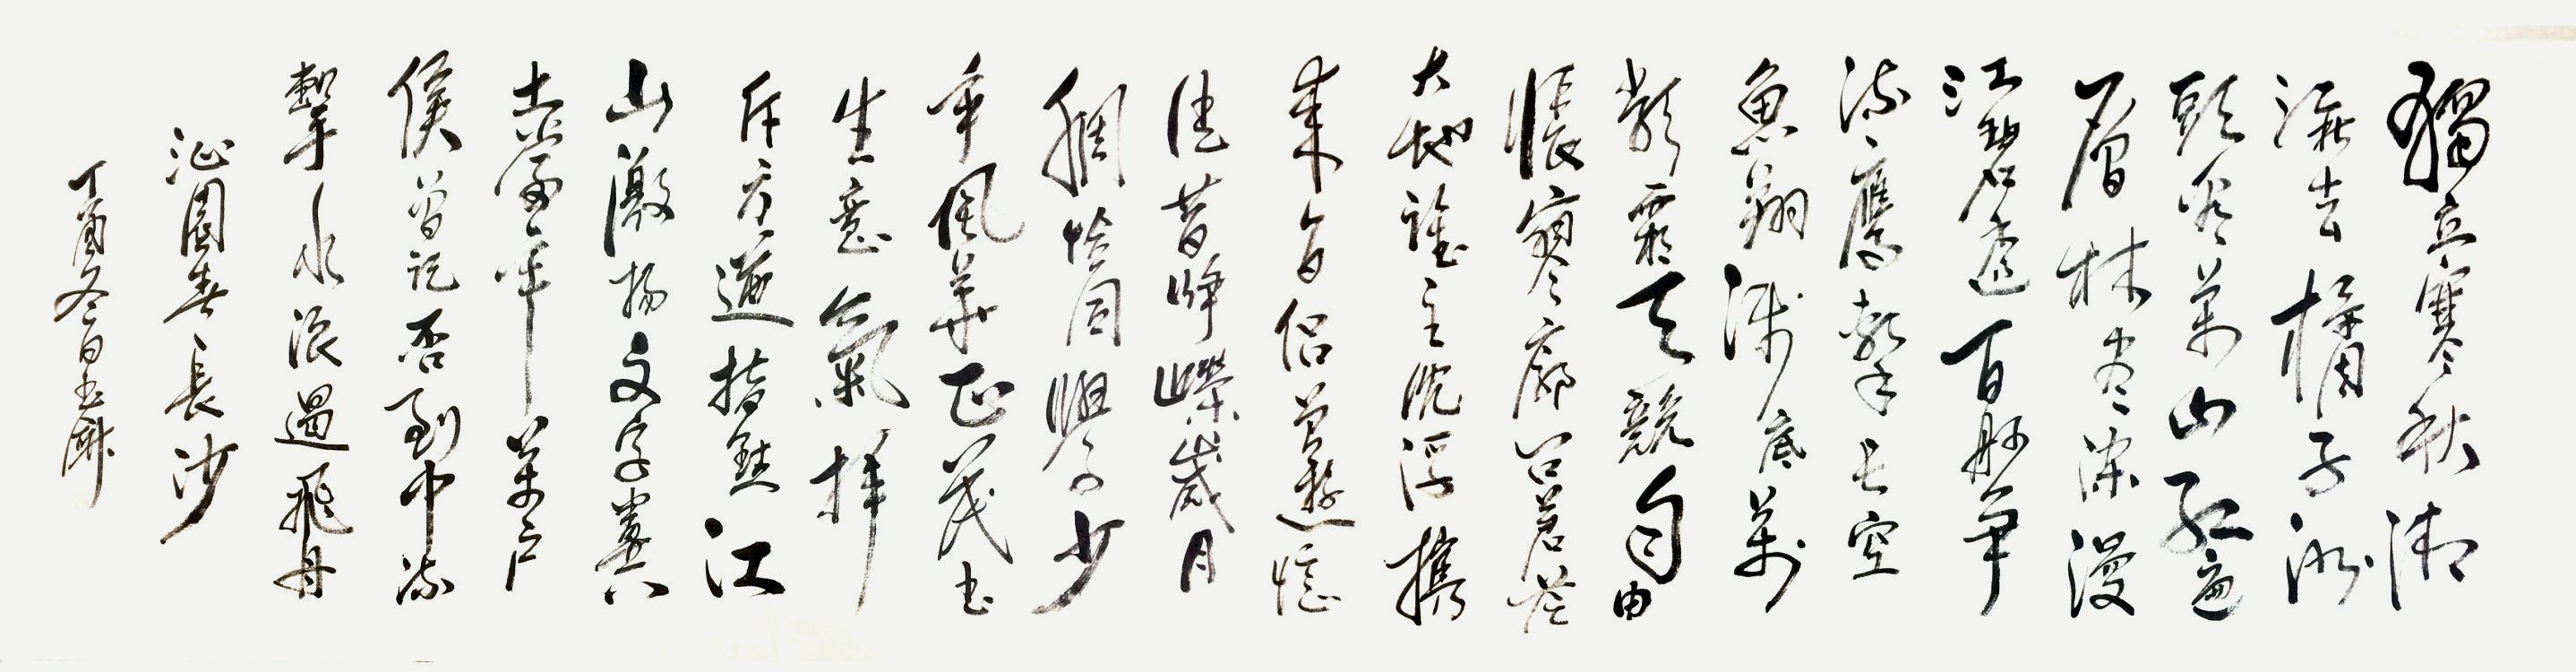 獨立寒秋湘
江北去橘子洲
頭看萬山紅遍
層林尽染漫
江碧透百舸争
流鷹擊長空
魚翔浅底萬
類霜天競自由
悵寥廓問蒼茫
大地誰主沉浮携
来百侣曾遊憶
往昔崢嶸歲月
稠恰同學少
年風華正茂書
生意氣揮
斥方遒指點江
山激揚文字糞
土當年萬户
侯曾記否到中流
擊水浪遏飛舟
沁園春長沙
丁酉冬日